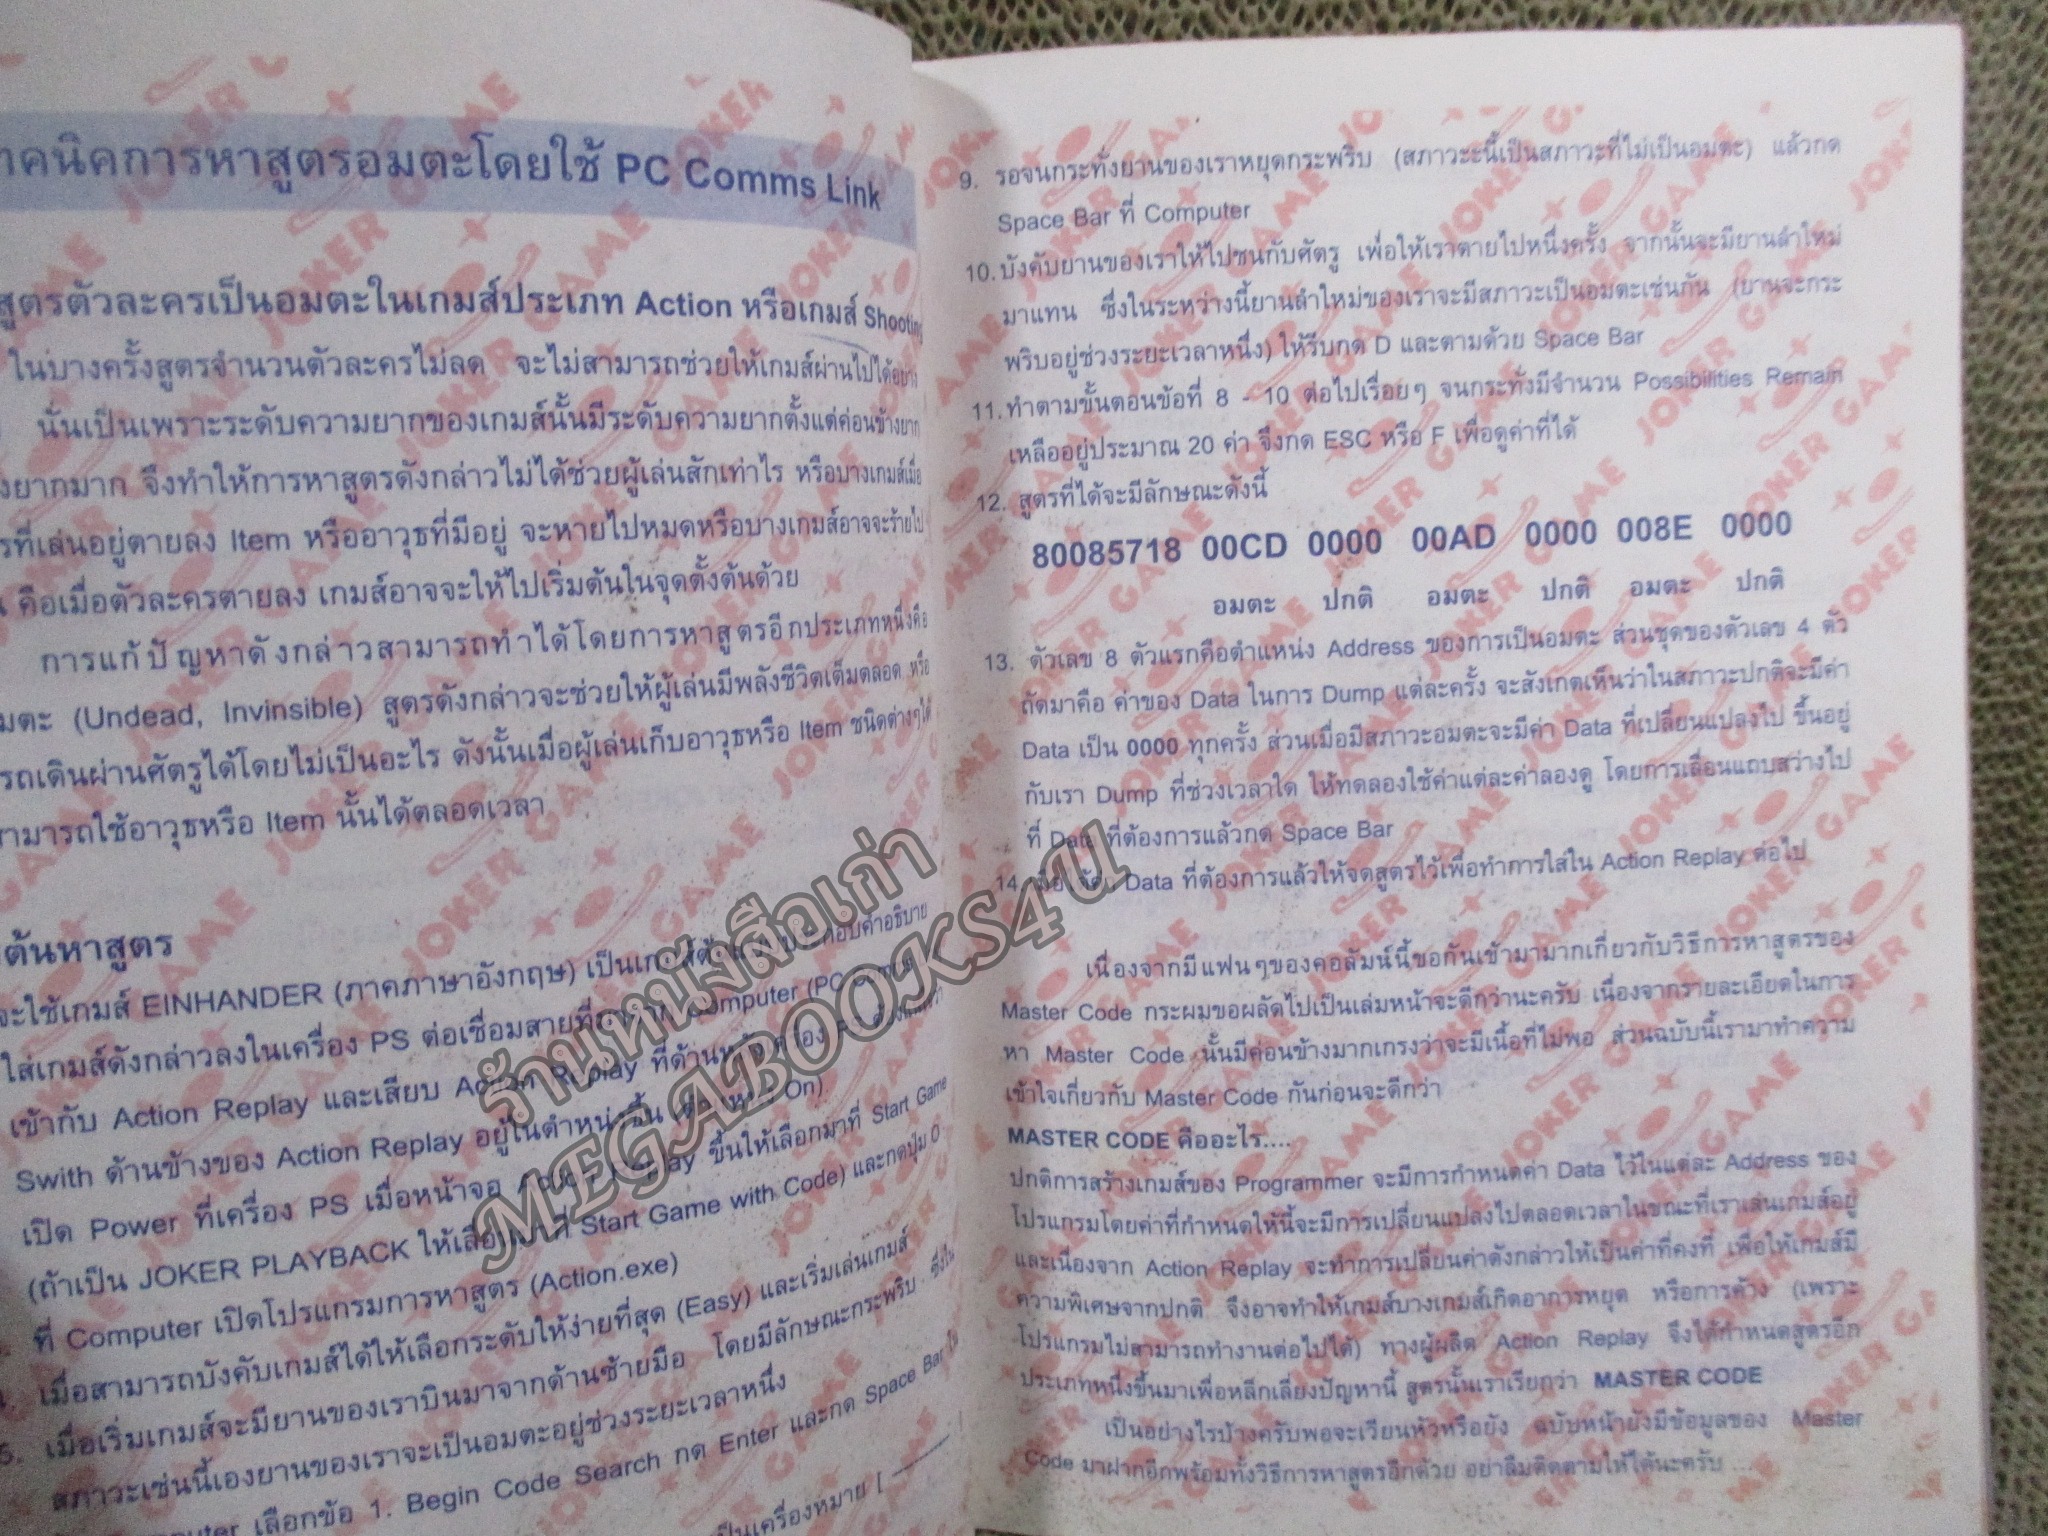 าคนิคการหาสูตรอมตะโดยใช้ PC Comms Link
สูตรตัวละครเป็นอมตะในเกมส์ประเภท Action หรือเกมส์ Shooting
ในบางครั้งสูตรจำนวนตัวละครไม่ลด จะไม่สามารถช่วยให้เกมส์ผ่านไปได้อย่าง
นั่นเป็นเพราะระดับความยากของเกมส์นั้นมีระดับความยากตั้งแต่ค่อนข้างยาก
งยากมาก จึงทำให้การหาสูตรดังกล่าวไม่ได้ช่วยผู้เล่นสักเท่าไร หรือบางเกมส์เมื่อ
รที่เล่นอยู่ตายลง Item หรืออาวุธที่มีอยู่ จะหายไปหมดหรือบางเกมส์อาจจะร้ายไป
น คือเมื่อตัวละครตายลง เกมส์อาจจะให้ไปเริ่มต้นในจุดตั้งต้นด้วย
การแก้ปัญหาดังกล่าวสามารถทำได้โดยการหาสูตรอีกประเภทหนึ่งคือ
มตะ (Undead, Invinsible) สูตรดังกล่าวจะช่วยให้ผู้เล่นมีพลังชีวิตเต็มตลอด หรือ
รถเดินผ่านศัตรูได้โดยไม่เป็นอะไร ดังนั้นเมื่อผู้เล่นเก็บอาวุธหรือ Item ชนิดต่างๆได้
สามารถใช้อาวุธหรือ Item นั้นได้ตลอดเวลา
ต้นหาสูตร
จะใช้เกมส์ EINHANDER (ภาคภาษาอังกฤษ) เป็นเกมส์ตัวอย่างประกอบคำอธิบาย
ใส่เกมส์ดังกล่าวลงในเครื่อง PS ต่อเชื่อมสายที่ Computer (PC Comms
เข้ากับ Action Replay และเสียบ Action Replay ที่ด้านหลังเครื่อง PS
Swith ด้านข้างของ Action Replay อยู่ในตำหน่งขึ้น On)
เปิด Power ที่เครื่อง PS เมื่อหน้าจอ Action Replay ขึ้นให้เลือกมาที่ Start Game
(ถ้าเป็น JOKER PLAYBACK ให้เลือกมาที่ Start Game with Code) และกดปุ่ม O
ที่ Computer เปิดโปรแกรมการหาสูตร (Action.exe)
เมื่อสามารถบังคับเกมส์ได้ให้เลือกระดับให้ง่ายที่สุด (Easy) และเริ่มเล่นเกมส์
5. เมื่อเริ่มเกมส์จะมียานของเราบินมาจากด้านซ้ายมือ โดยมีลักษณะกระพริบ ซึ่งใน
สภาวะเช่นนี้เองยานของเราจะเป็นอมตะอยู่ช่วงระยะเวลาหนึ่ง
เลือกข้อ 1. Begin Code Search กด Enter และกด Space Bar
เป็นเครื่องหมาย [
9. รอจนกระทั่งยานของเราหยุดกระพริบ (สภาวะะนี้เป็นสภาวะที่ไม่เป็นอมตะ) แล้วกด
Space Bar ที่ Computer
10. บังคับยานของเราให้ไปชนกับศัตรู เพื่อให้เราตายไปหนึ่งครั้ง จากนั้นจะมียานลำใหม่
มาแทน ซึ่งในระหว่างนี้ยานลำใหม่ของเราจะมีสภาวะเป็นอมตะเช่นกัน (ยานจะกระ
พริบอยู่ช่วงระยะเวลาหนึ่ง) ให้รีบกด D และตามด้วย Space Bar
11. ทำตามขั้นตอนข้อที่ 8 - 10 ต่อไปเรื่อยๆ จนกระทั่งมีจำนวน Possibilities Remain
เหลืออยู่ประมาณ 20 ค่า จึงกด ESC หรือ F เพื่อดูค่าที่ได้
12. สูตรที่ได้จะมีลักษณะดังนี้
80085718 00CD 0000 00AD 0000 008E 0000
อมตะ ปกติ อมตะ ปกติ อมตะ ปกติ
13. ตัวเลข 8 ตัวแรกคือตำแหน่ง Address ของการเป็นอมตะ ส่วนชุดของตัวเลข 4 ตัว
ถัดมาคือ ค่าของ Data ในการ Dump แต่ละครั้ง จะสังเกตเห็นว่าในสภาวะปกติจะมีค่า
Data เป็น 0000 ทุกครั้ง ส่วนเมื่อมีสภาวะอมตะจะมีค่า Data ที่เปลี่ยนแปลงไป ขึ้นอยู่
กับเรา Dump ที่ช่วงเวลาใด ให้ทดลองใช้ค่าแต่ละค่าลองดู โดยการเลื่อนแถบสว่างไป
ที่ Data ที่ต้องการแล้วกด Space Bar
14. เมื่อได้ค่า Data ที่ต้องการแล้วให้จดสูตรไว้เพื่อทำการใส่ใน Action Replay ต่อไป
เนื่องจากมีแฟนๆของคอลัมน์นี้ขอกันเข้ามามากเกี่ยวกับวิธีการหาสูตรของ
Master Code กระผมขอผลัดไปเป็นเล่มหน้าจะดีกว่านะครับ เนื่องจากรายละเอียดในการ
หา Master Code นั้นมีค่อนข้างมากเกรงว่าจะมีเนื้อที่ไม่พอ ส่วนฉบับนี้เรามาทำความ
เข้าใจเกี่ยวกับ Master Code กันก่อนจะดีกว่า
MASTER CODE คืออะไร....
ปกติการสร้างเกมส์ของ Programmer จะมีการกำหนดค่า Data ไว้ในแต่ละ Address ของ
โปรแกรมโดยค่าที่กำหนดให้นี้จะมีการเปลี่ยนแปลงไปตลอดเวลาในขณะที่เราเล่นเกมส์อยู่
และเนื่องจาก Action Replay จะทำการเปลี่ยนค่าดังกล่าวให้เป็นค่าที่คงที่ เพื่อให้เกมส์มี
ความพิเศษจากปกติ จึงอาจทำให้เกมส์บางเกมส์เกิดอาการหยุด หรือการค้าง (เพราะ
โปรแกรมไม่สามารถทำงานต่อไปได้) ทางผู้ผลิต Action Replay จึงได้กำหนดสูตรอีก
ประเภทหนึ่งขึ้นมาเพื่อหลีกเลี่ยงปัญหานี้ สูตรนั้นเราเรียกว่า MASTER CODE
เป็นอย่างไรบ้างครับพอจะเวียนหัวหรือยัง ฉบับหน้ายังมีข้อมูลของ Master
Code มาฝากอีกพร้อมทั้งวิธีการหาสูตรอีกด้วย อย่าลืมติดตามให้ได้นะครับ ...
ร้านหนังสือเก่า
MEGABOOKS4U